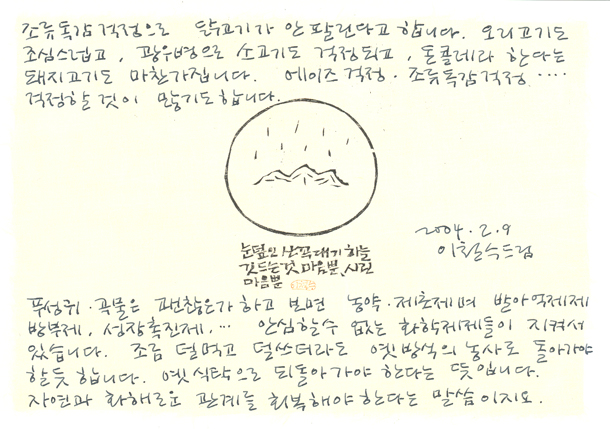 조류독감 걱정으로 닭고기가 안 팔린다고 합니다. 오리고기도
조심스럽고, 광우병으로 소고기도 걱정되고, 돈콜레라 한다는
돼지고기도 마찬가집니다. 에이즈 걱정·조류독감걱정····
걱정할 것이 많기도 합니다.
2004.2.9
이철수드림
눈덮인 산꼭대기 하늘
깃드는것 마음뿐, 시린
마음뿐
푸성귀·곡물은 괜찮은가 하고 보면 농약·제초제며 발아억제제
방부제, 성장촉진제,··· 안심할수 없는 화학제제들이 지켜서
있습니다. 조금 덜먹고 덜쓰더라도 옛 방식의 농사로 돌아가야
할듯 합니다. 옛 식탁으로 되돌아가야 한다는 뜻입니다.
자연과 화해로운 관계를 회복해야 한다는 말씀이지요.